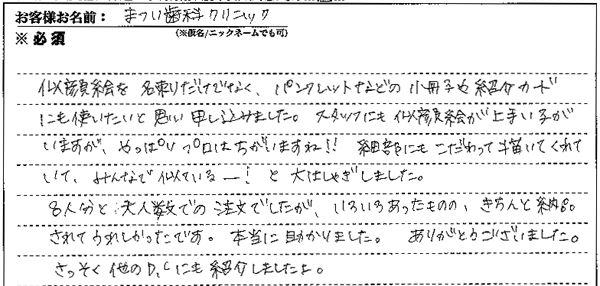 お客様お名前： まつい歯科クリニック
※必須
（※仮名/ニックネームでも可）
似顔絵を 名刺だけでなく、パンフレットなどの 小冊子や紹介カード
にも使いたいと思い申し込みました。スタッフにも似顔絵が上手い子が
いますが、やっぱりプロはちがいますね!! 細部にもこだわって描いてくれて
いて、みんなで似ているー! と大はしゃぎしました。
8人分と大人数での注文でしたが、いろいろあったものの、きちんと納品
されてうれしかったです。本当に助かりました。ありがとうございました。
さっそく他のD.Cにも紹介しましたよ。